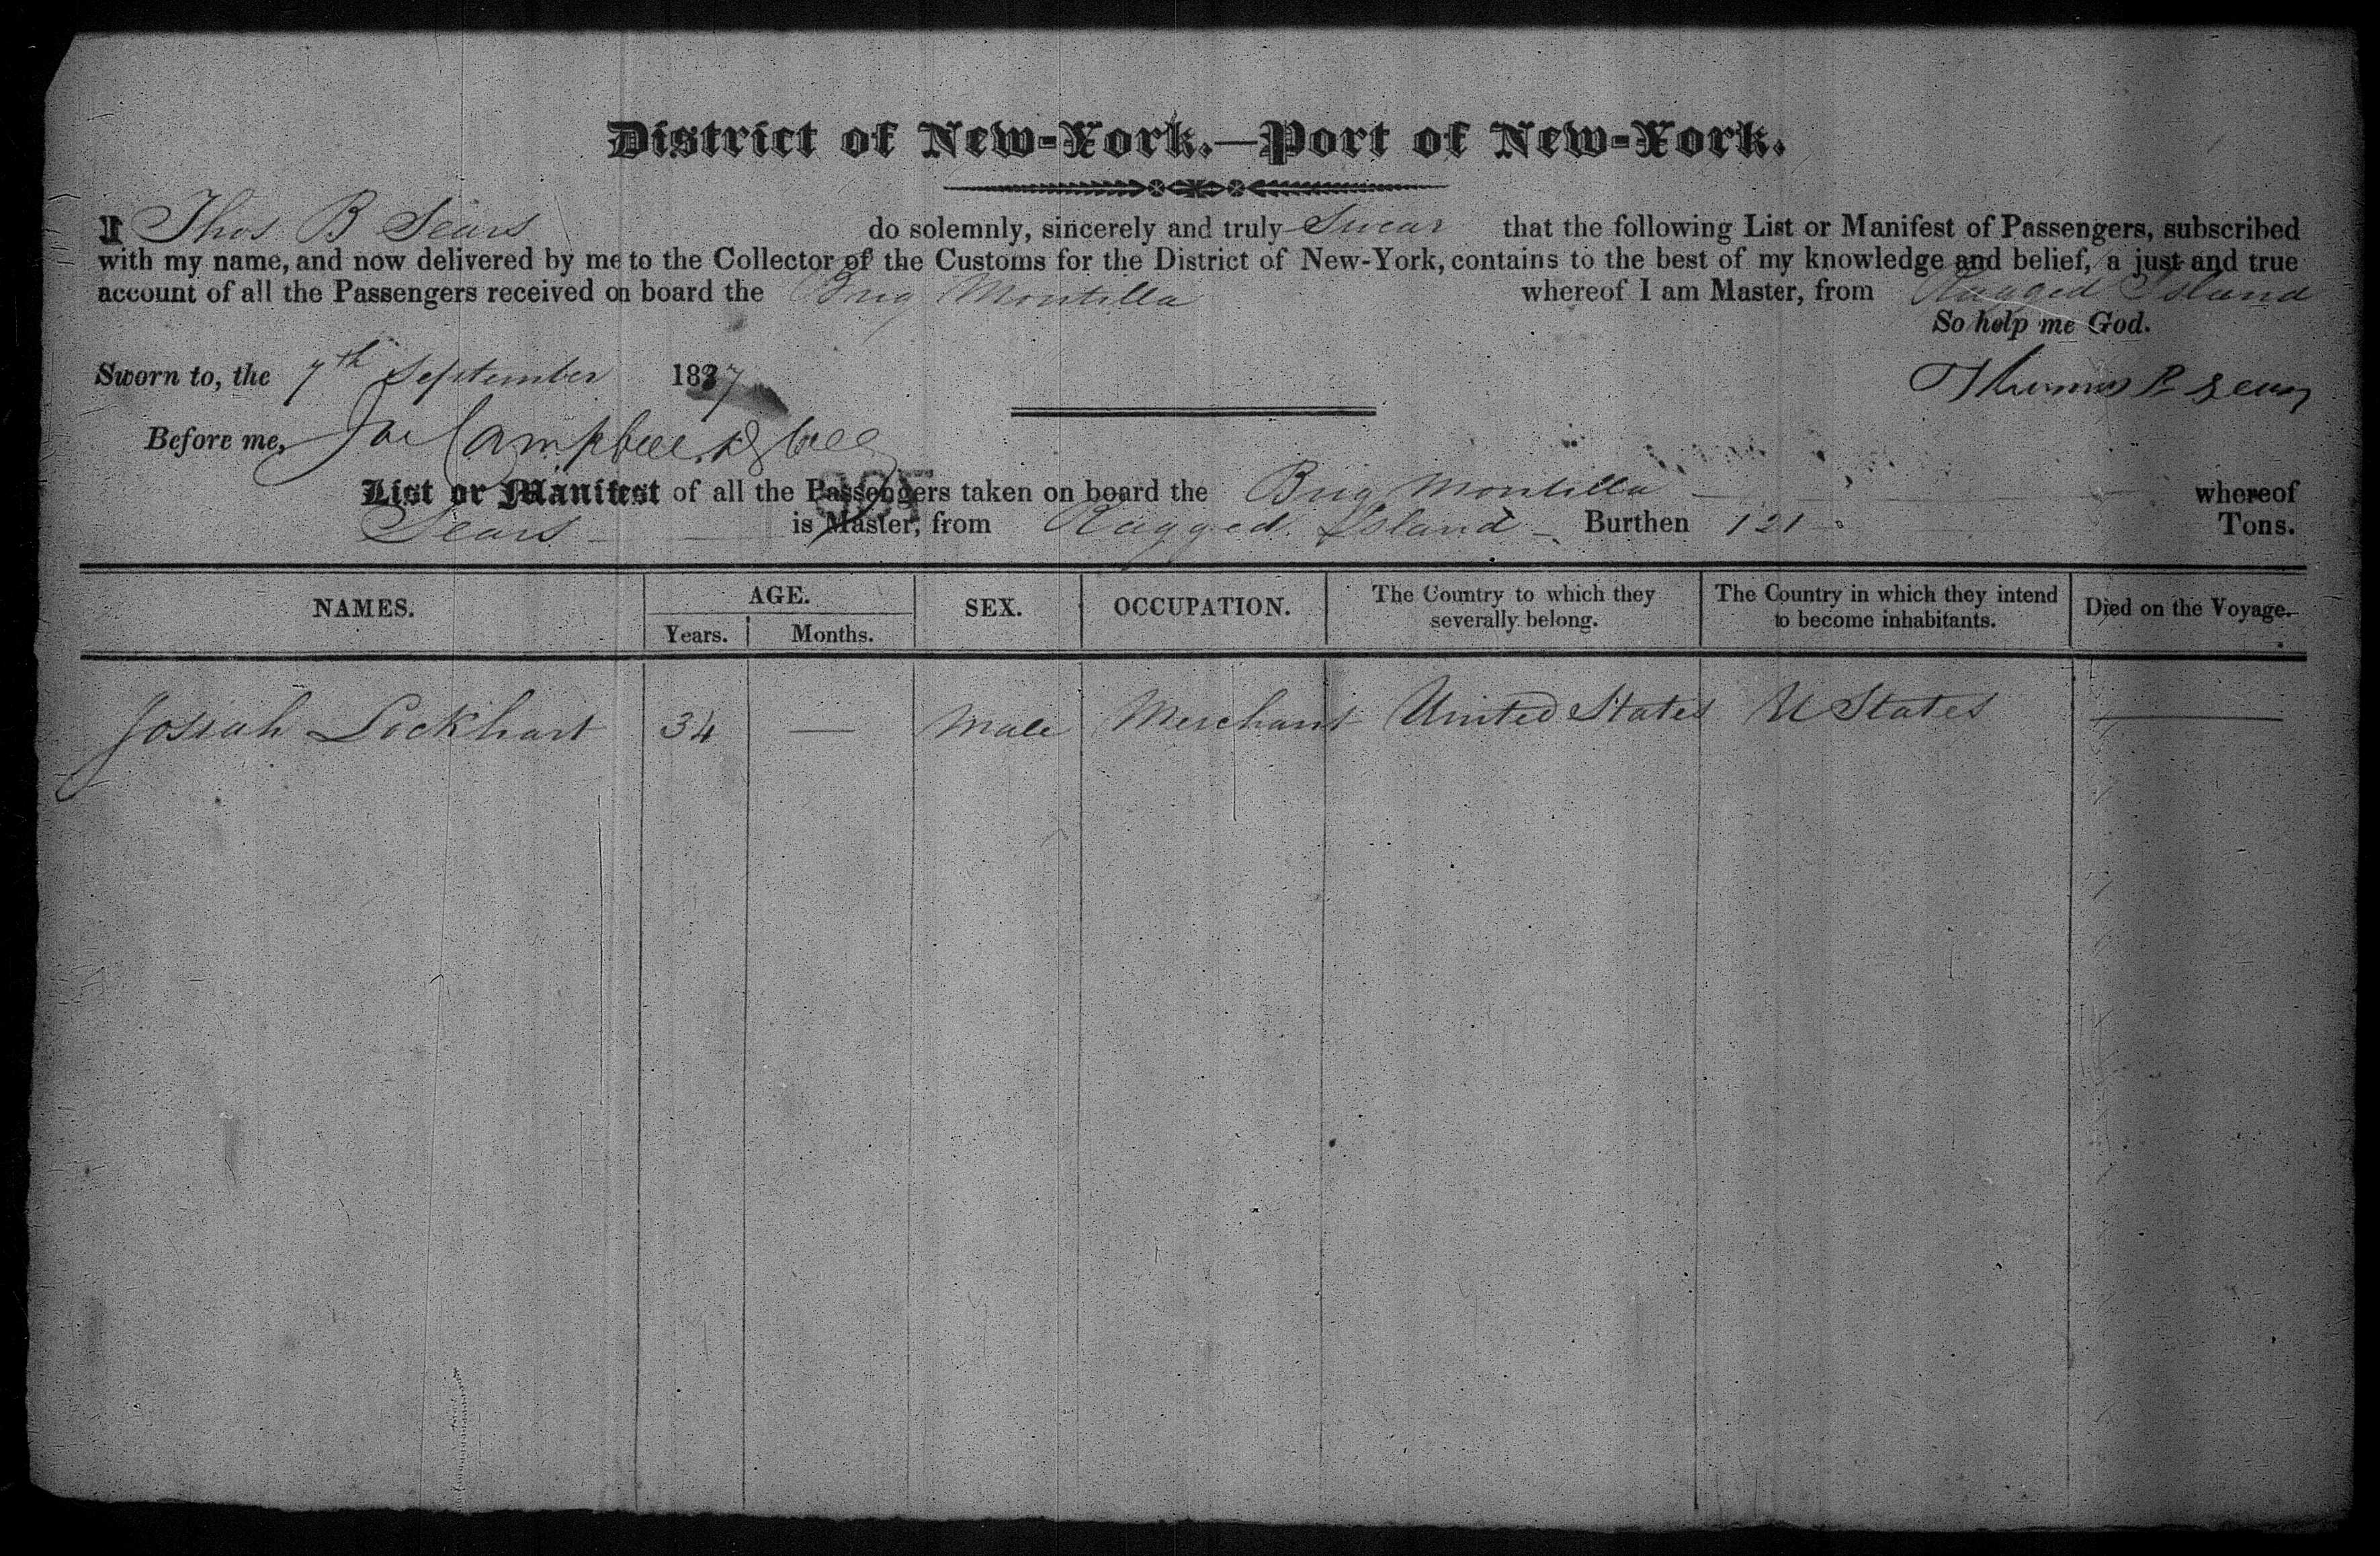 District of New-York.—Port of New-York.
I Thos B Sears do solemnly, sincerely and truly Swear that the following List or Manifest of Passengers, subscribed
with my name, and now delivered by me to the Collector of the Customs for the District of New-York, contains to the best of my knowledge and belief, a just and true
account of all the Passengers received on board the Brig Montilla whereof I am Master, from Ragged Island
So help me God.
Sworn to, the 7th September 1837 Thomas B Sears
Before me, Campbell
List or Manifest of all the Passengers taken on board the Brig Montilla whereof
Sears is Master, from Ragged Island Burthen 121 Tons.
NAMES. AGE. SEX. OCCUPATION. The Country to which they severally belong. The Country in which they intend to become inhabitants. Died on the Voyage.
Years. Months.
Josiah Lockhart 34 — Male Merchant United States U States —